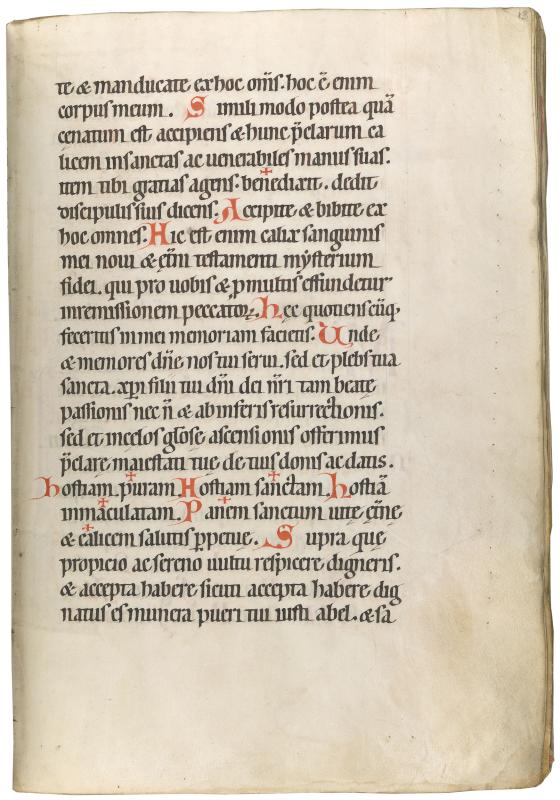 te & manducate ex hoc om̄s. hoc ē enim
corpus meum. Simili modo postea quā
cenatum est accipiens & hunc p̄clarum ca
licem in sanctas ac uenerabiles manus suas.
item tibi gratias agens. bene✝dixit. dedit
discipulis suis dicens. Accipite & bibite ex
hoc omnes. Hic est enim calix sanguinis
mei noui & et̄ni testamenti mẏsterium
fidei. qui pro uobis & p multis effundetur
in remissionem peccatoꝝ. Hęc quotienscūq;
feceritis in mei memoriam facietis. Unde
& memores dn̄e nos tui serui. sed et plebs tua
sancta. xp̄i filii tui dn̄i dei nr̄i tam beate
passionis nec n̄ & ab inferis resurrectionis.
sed et in celos gl̄ose ascensionis offerimus
p̄clare maiestati tue de tuis donis ac datis.
hostiam ✝ puram Hostiam san✝ctam hostiā
imma✝culatam. Panem ✝ sanctum uite et̄ne
& ca✝licem salutis ꝑpetue. Supra que
propicio ac sereno uultu respicere digneris.
& accepta habere sicuti accepta habere dig
natus es munera pueri tui iusti abel. & sa